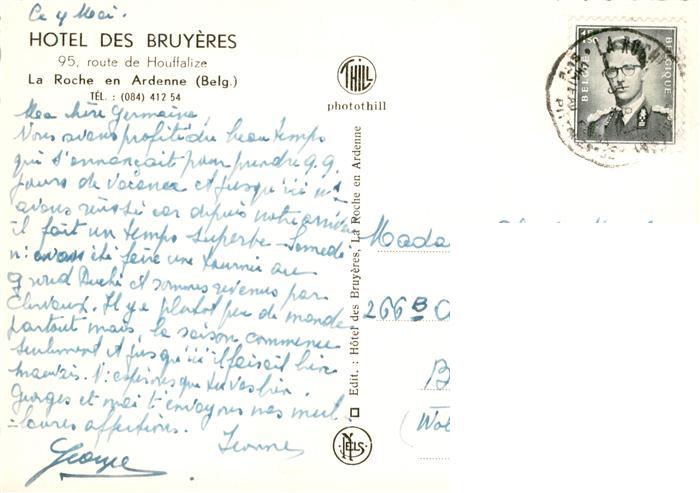 Ce 4 Mai.
HOTEL DES BRUYÈRES
95, route de Houffalize
La Roche en Ardenne (Belg.)
TÉL. : (084) 412 54
Ma chère Germaine,
Nous avons profité du beau temps
qui s'annonçait pour prendre qq.
jours de vacance et jusqu'ici ns
avons réussi car depuis notre arrivée
il fait un temps superbe. Samedi
ns avons été faire une tournée au
Grand Duché et sommes revenus par
Clervaux. Il y a plutôt peu de monde
partout mais la saison commence
seulement et jusqu'ici il faisait bien
mauvais. N. espérons que tu vas bien.
Georges et moi t'envoyons nos meil-
leures affections.
Ivonne
George
THILL
photothill
Edit. : Hôtel des Bruyères, La Roche en Ardenne
NELS
BELGIE BELGIQUE
LA ROCHE
Mada
266 B
B
(Wol